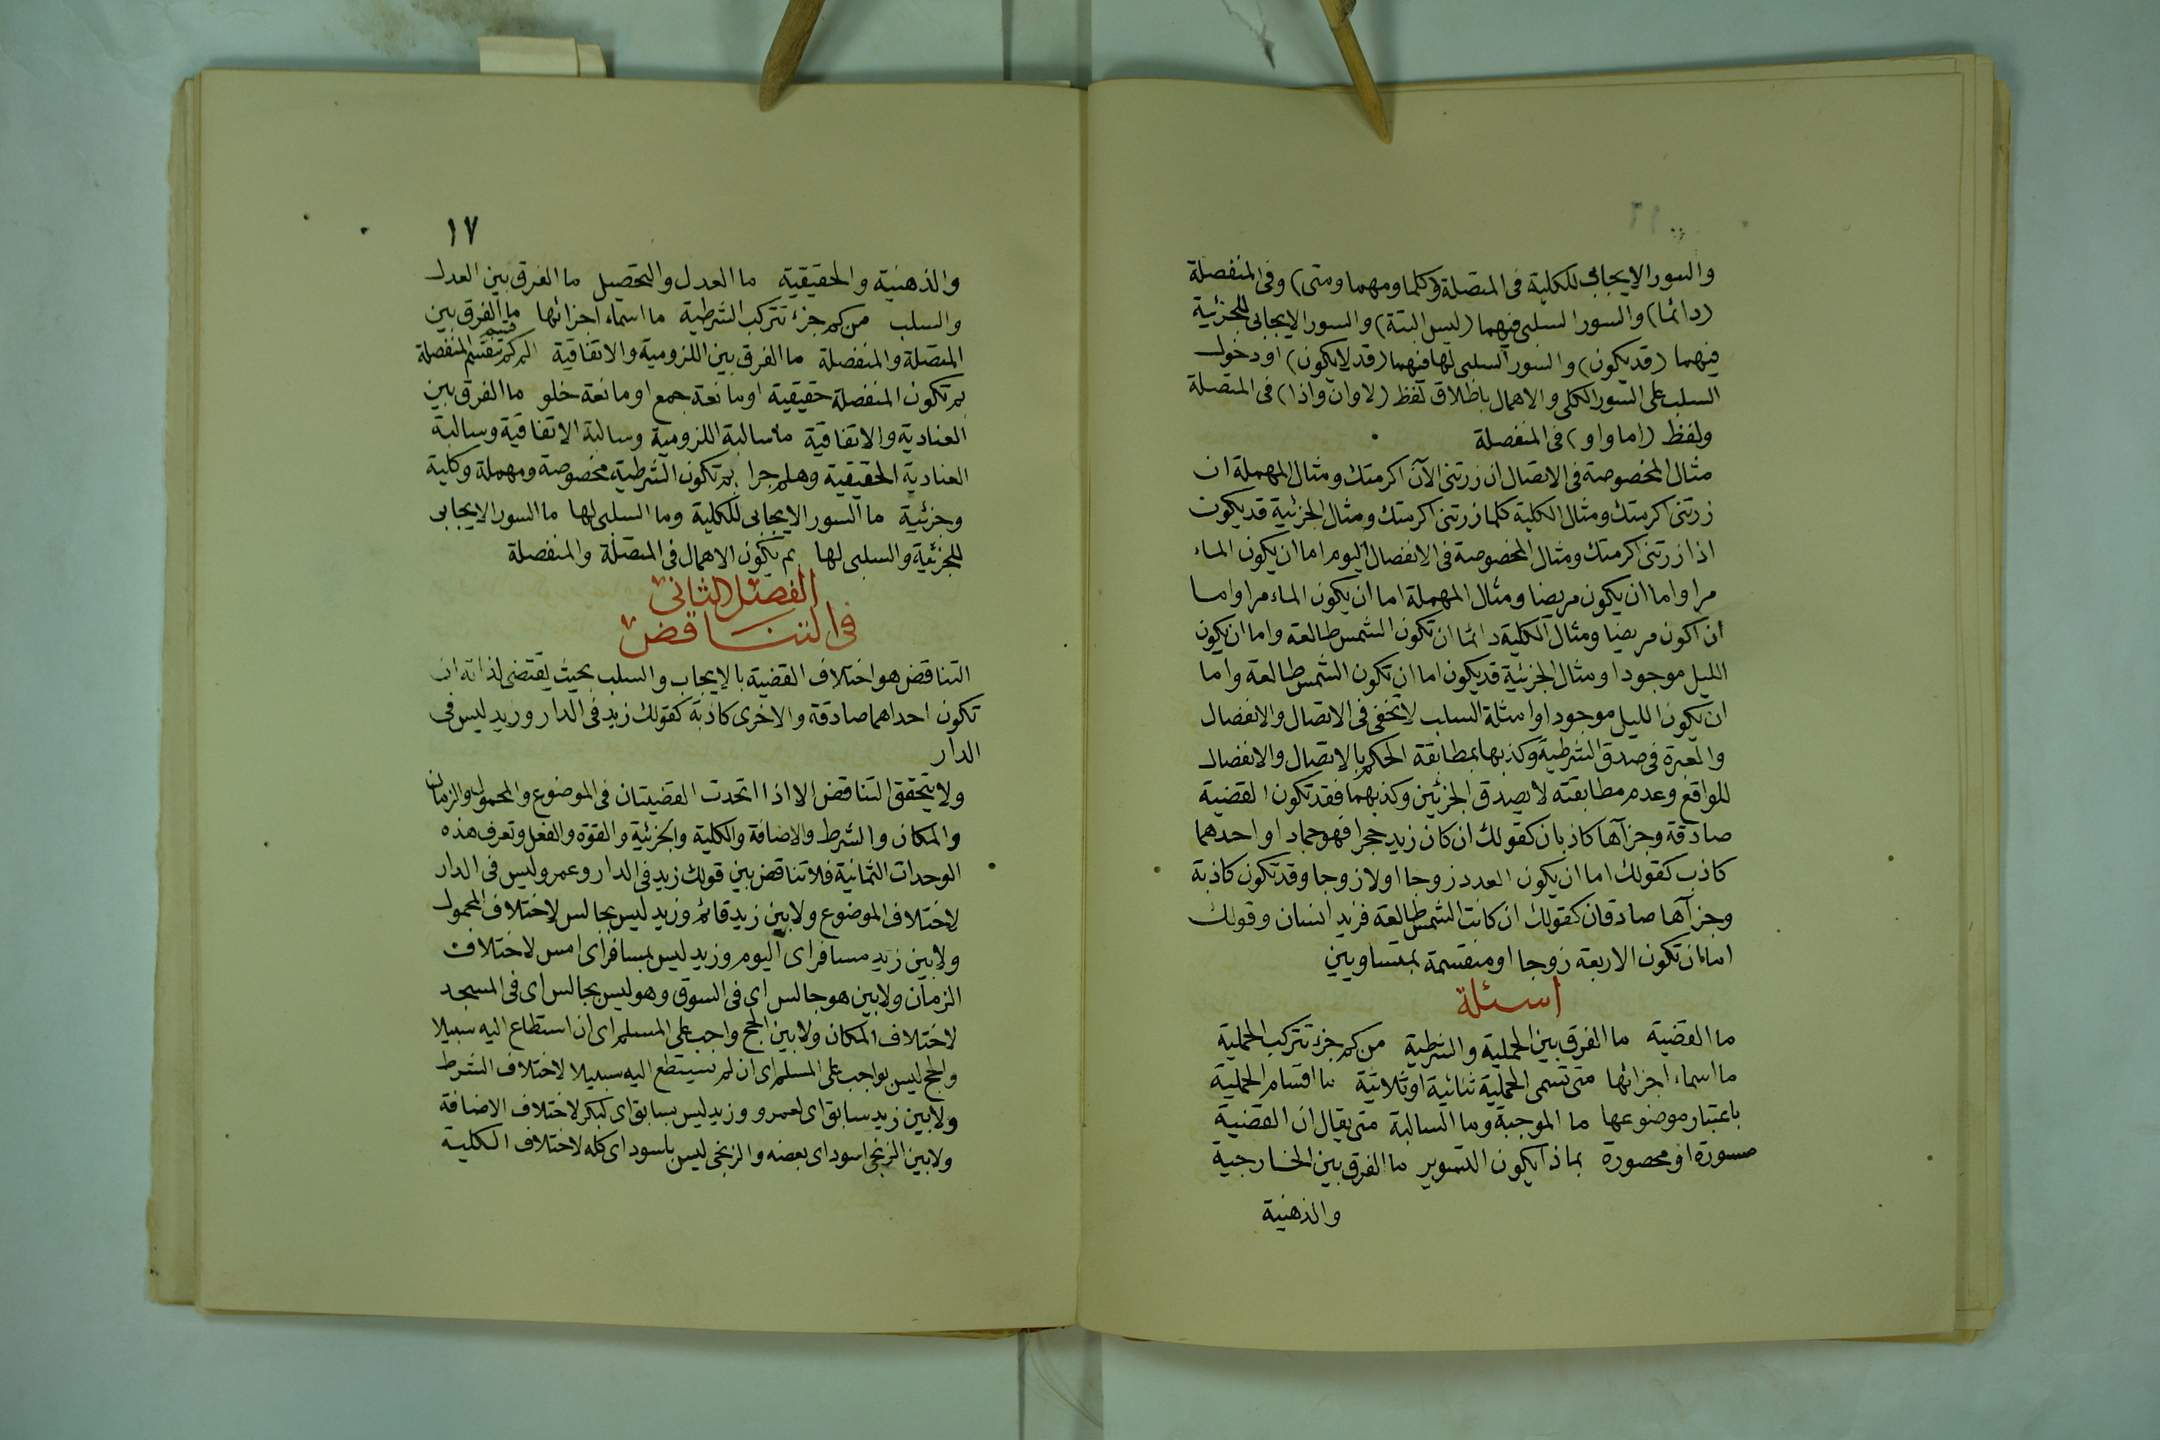 ١٦
والسور الايجابى للكلية فى المتصلة (كلما ومهما ومتى) وفى المنفصلة
(دائما) والسور السلبى فيهما (ليس البتة) والسور الايجابى للجزئية
فيهما (قد يكون) والسور السلبى لها فيهما (قد لا يكون) او دخول
السلب على السور الكلى والاهمال باطلاق لفظ (لو وان واذا) فى المتصلة
ولفظ (اما واو) فى المنفصلة
مثال المخصوصة فى الاتصال ان زرتنى الآن اكرمتك ومثال المهملة ان
زرتنى اكرمتك ومثال الكلية كلما زرتنى اكرمتك ومثال الجزئية قد يكون
اذا زرتنى اكرمتك ومثال المخصوصة فى الانفصال اليوم اما ان يكون الماء
مرا واما ان يكون مريضا ومثال المهملة اما ان يكون الماء مرا واما
ان اكون مريضا ومثال الكلية دائما ان تكون الشمس طالعة واما ان يكون
الليل موجودا ومثال الجزئية قد يكون اما ان تكون الشمس طالعة واما
ان يكون الليل موجودا وامثلة السلب لا تخفى فى الاتصال والانفصال
والعبرة فى صدق الشرطية وكذبها بمطابقة الحكم بالاتصال والانفصال
للواقع وعدم مطابقته لا بصدق الجزئين وكذبهما فقد تكون القضية
صادقة وجزآها كاذبان كقولك ان كان زيد حجرا فهو جماد او احدهما
كاذب كقولك اما ان يكون العدد زوجا او لا زوجا وقد تكون كاذبة
وجزآها صادقان كقولك ان كانت الشمس طالعة فزيد انسان وقولك
اما ان تكون الاربعة زوجا او منقسمة بمتساويين
اسئلة
ما القضية ما الفرق بين الحملية والشرطية من كم جزء تتركب الحملية
ما اسماء اجزائها متى تسمى الحملية ثنائية او ثلاثية ما اقسام الحملية
باعتبار موضوعها ما الموجبة وما السالبة متى يقال ان القضية
مسورة او محصورة بماذا يكون التسوير ما الفرق بين الخارجية
والذهنية
١٧
والذهنية والحقيقية ما العدل والتحصيل ما الفرق بين العدل
والسلب من كم جزء تتركب الشرطية ما اسماء اجزائها ما الفرق بين
المتصلة والمنفصلة ما الفرق بين اللزومية والاتفاقية الى كم قسم تنقسم المنفصلة
بم تكون المنفصلة حقيقية او مانعة جمع او مانعة خلو ما الفرق بين
العنادية والاتفاقية ما سالبة اللزومية وسالبة الاتفاقية وسالبة
العنادية الحقيقية وهلم جرا بم تكون الشرطية مخصوصة ومهملة وكلية
وجزئية ما السور الايجابى للكلية وما السلبى لها ما السور الايجابى
للجزئية والسلبى لها بم يكون الاهمال فى المتصلة والمنفصلة
الفصل الثانى
فى التناقض
التناقض هو اختلاف القضية بالايجاب والسلب بحيث يقتضى لذاته ان
تكون احداهما صادقة والاخرى كاذبة كقولك زيد فى الدار وزيد ليس فى
الدار
ولا يتحقق التناقض الا اذا اتحدت القضيتان فى الموضوع والمحمول والزمان
والمكان والشرط والاضافة والكلية والجزئية والقوة والفعل وتعرف هذه
الوحدات الثمانية فلا تناقض بين قولك زيد فى الدار وعمرو ليس فى الدار
لاختلاف الموضوع ولا بين زيد قائم وزيد ليس بجالس لاختلاف المحمول
ولا بين زيد مسافر اى اليوم وزيد ليس بمسافر اى امس لاختلاف
الزمان ولا بين هو جالس اى فى السوق وهو ليس بجالس اى فى المسجد
لاختلاف المكان ولا بين الحج واجب على المسلم اى ان استطاع اليه سبيلا
والحج ليس بواجب على المسلم اى ان لم يستطع اليه سبيلا لاختلاف الشرط
ولا بين زيد سابق اى لعمرو وزيد ليس بسابق اى لبكر لاختلاف الاضافة
ولا بين الزنجى اسود اى بعضه والزنجى ليس باسود اى كله لاختلاف الكلية